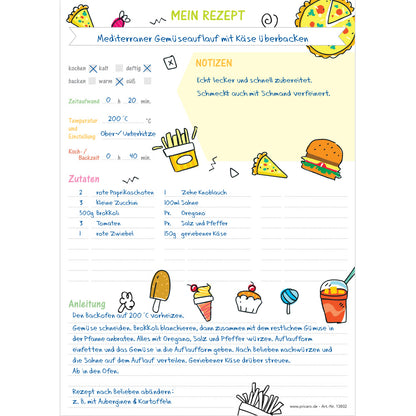 MEIN REZEPT
Mediterraner Gemüseauflauf mit Käse überbacken
kochen kalt deftig
backen warm süß
Zeitaufwand 0 h 20 min.
Temperatur und Einstellung 200 °C
Ober-/Unterhitze
Koch-/Backzeit 0 h 40 min.
NOTIZEN
Echt lecker und schnell zubereitet.
Schmeckt auch mit Schmand verfeinert.
Zutaten
2 rote Paprikaschoten 1 Zehe Knoblauch
3 kleine Zucchini 100ml Sahne
500g Brokkoli Pr. Oregano
3 Tomaten Pr. Salz und Pfeffer
1 rote Zwiebel 150g geriebener Käse
Anleitung
Den Backofen auf 200 °C vorheizen.
Gemüse schneiden. Brokkoli blanchieren, dann zusammen mit dem restlichem Gemüse in
der Pfanne anbraten. Alles mit Oregano, Salz und Pfeffer würzen. Auflaufform
einfetten und das Gemüse in die Auflaufform geben. Nach Belieben nachwürzen und
die Sahne auf dem Auflauf verteilen. Geriebener Käse drüber streuen.
Ab in den Ofen.
Rezept nach Belieben abändern:
z. B. mit Auberginen & Kartoffeln
www.pricaro.de - Art.-Nr. 13802